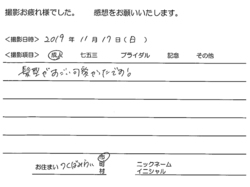 撮影お疲れ様でした。　感想をお願いいたします。
<撮影日時> 2019 年 11 月 17 日 ( 日 )
<撮影項目> 成人 七五三 ブライダル 記念 その他
髪型がすごい可愛かったです。
市
お住まい つくばみらい 町
村
ニックネーム
イニシャル